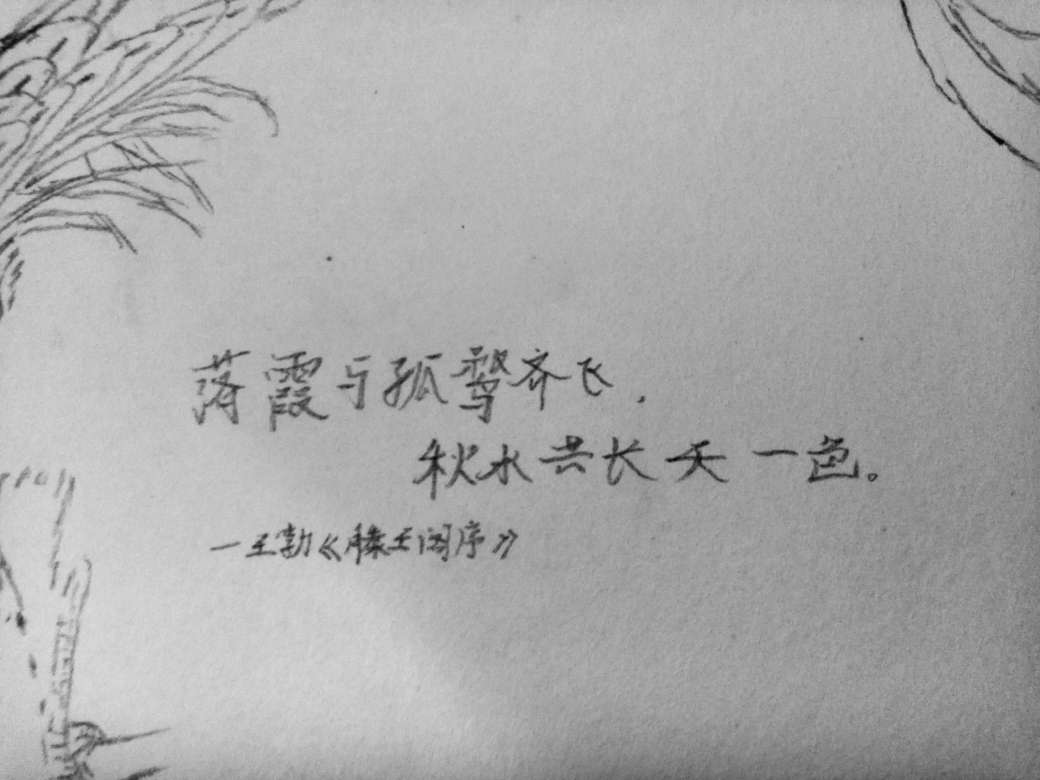 落霞与孤鹜齐飞.
秋水共长天一色。
—王勃《滕王阁序》